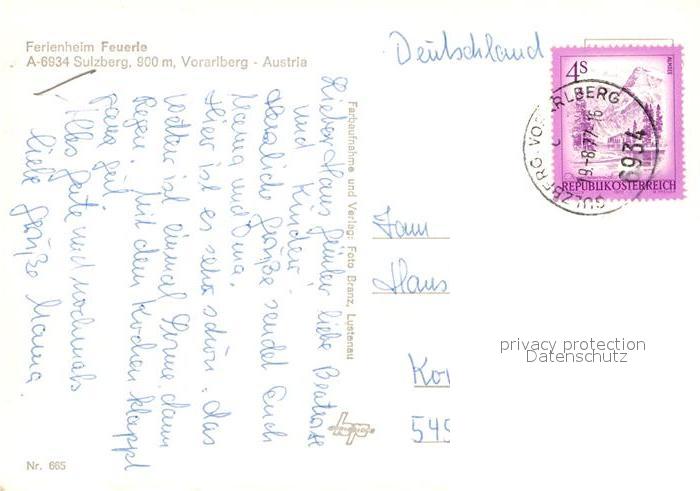 Ferienheim Feuerle
A-6934 Sulzberg, 900 m, Vorarlberg - Austria
Deutschland
4S
ALMSEE
REPUBLIK ÖSTERREICH
SULZBERG VORARLBERG
19.-8.77-16
6934
Lieber Hans Günter liebe Beatrix
und Kinder
Herzliche Grüße sendet Euch
Mama und Oma.
Hier ist es sehr schön. das
Wetter ist einmal Sonne dann
Regen. Mit dem Kochen klappt
ganz gut
Alles Gute und nochmals
liebe Grüße Mama
Farbaufnahme und Verlag: Foto Branz, Lustenau
Hans
Ko
545
privacy protection
Datenschutz
Nr. 665